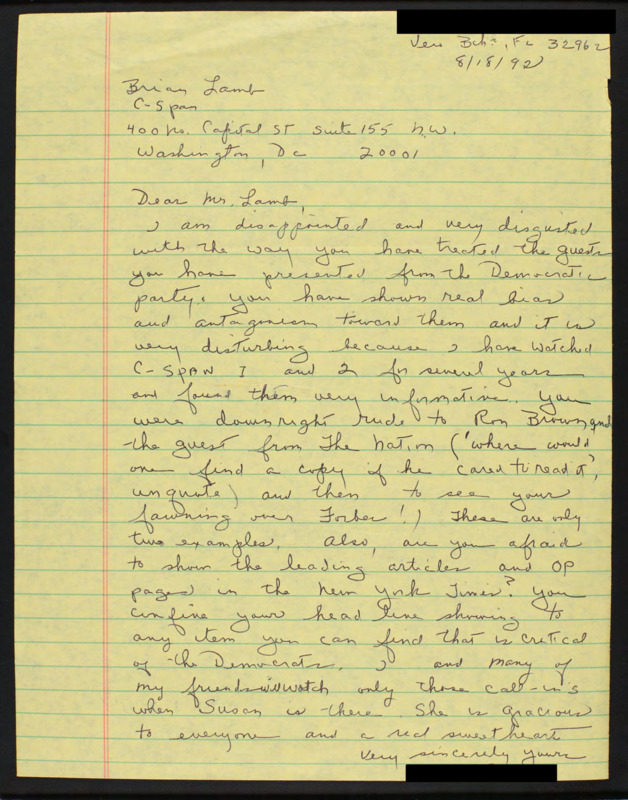 Vero Bch., FL 32962
8/18/92
Brian Lamb
C-Span
400 No. Capital ST Suite 155 N.W.
Washington, Dc 20001
Dear Mr. Lamb,
I am disappointed and very disgusted
with the way you have treated the guests
you have presented from the Democratic
party. You have shown real bias
and antagonism toward them and it is
very disturbing because I have watched
C-SPAN I and 2 for several years
and found them very informative. You
were downright rude to Ron Brown and
the guest from The Nation ('where would
one find a copy if he cared to read it,'
unquote) and then to see your
fawning over Forbes!) These are only
two examples. Also, are you afraid
to show the leading articles and OP
pages in the New York Times? You
confine your head line showing to
any item you can find that is critical
of the Democrats. I and many of
my friends will watch only those call-in's
when Susan is there. She is gracious
to everyone and a real sweetheart
Very sincerely yours